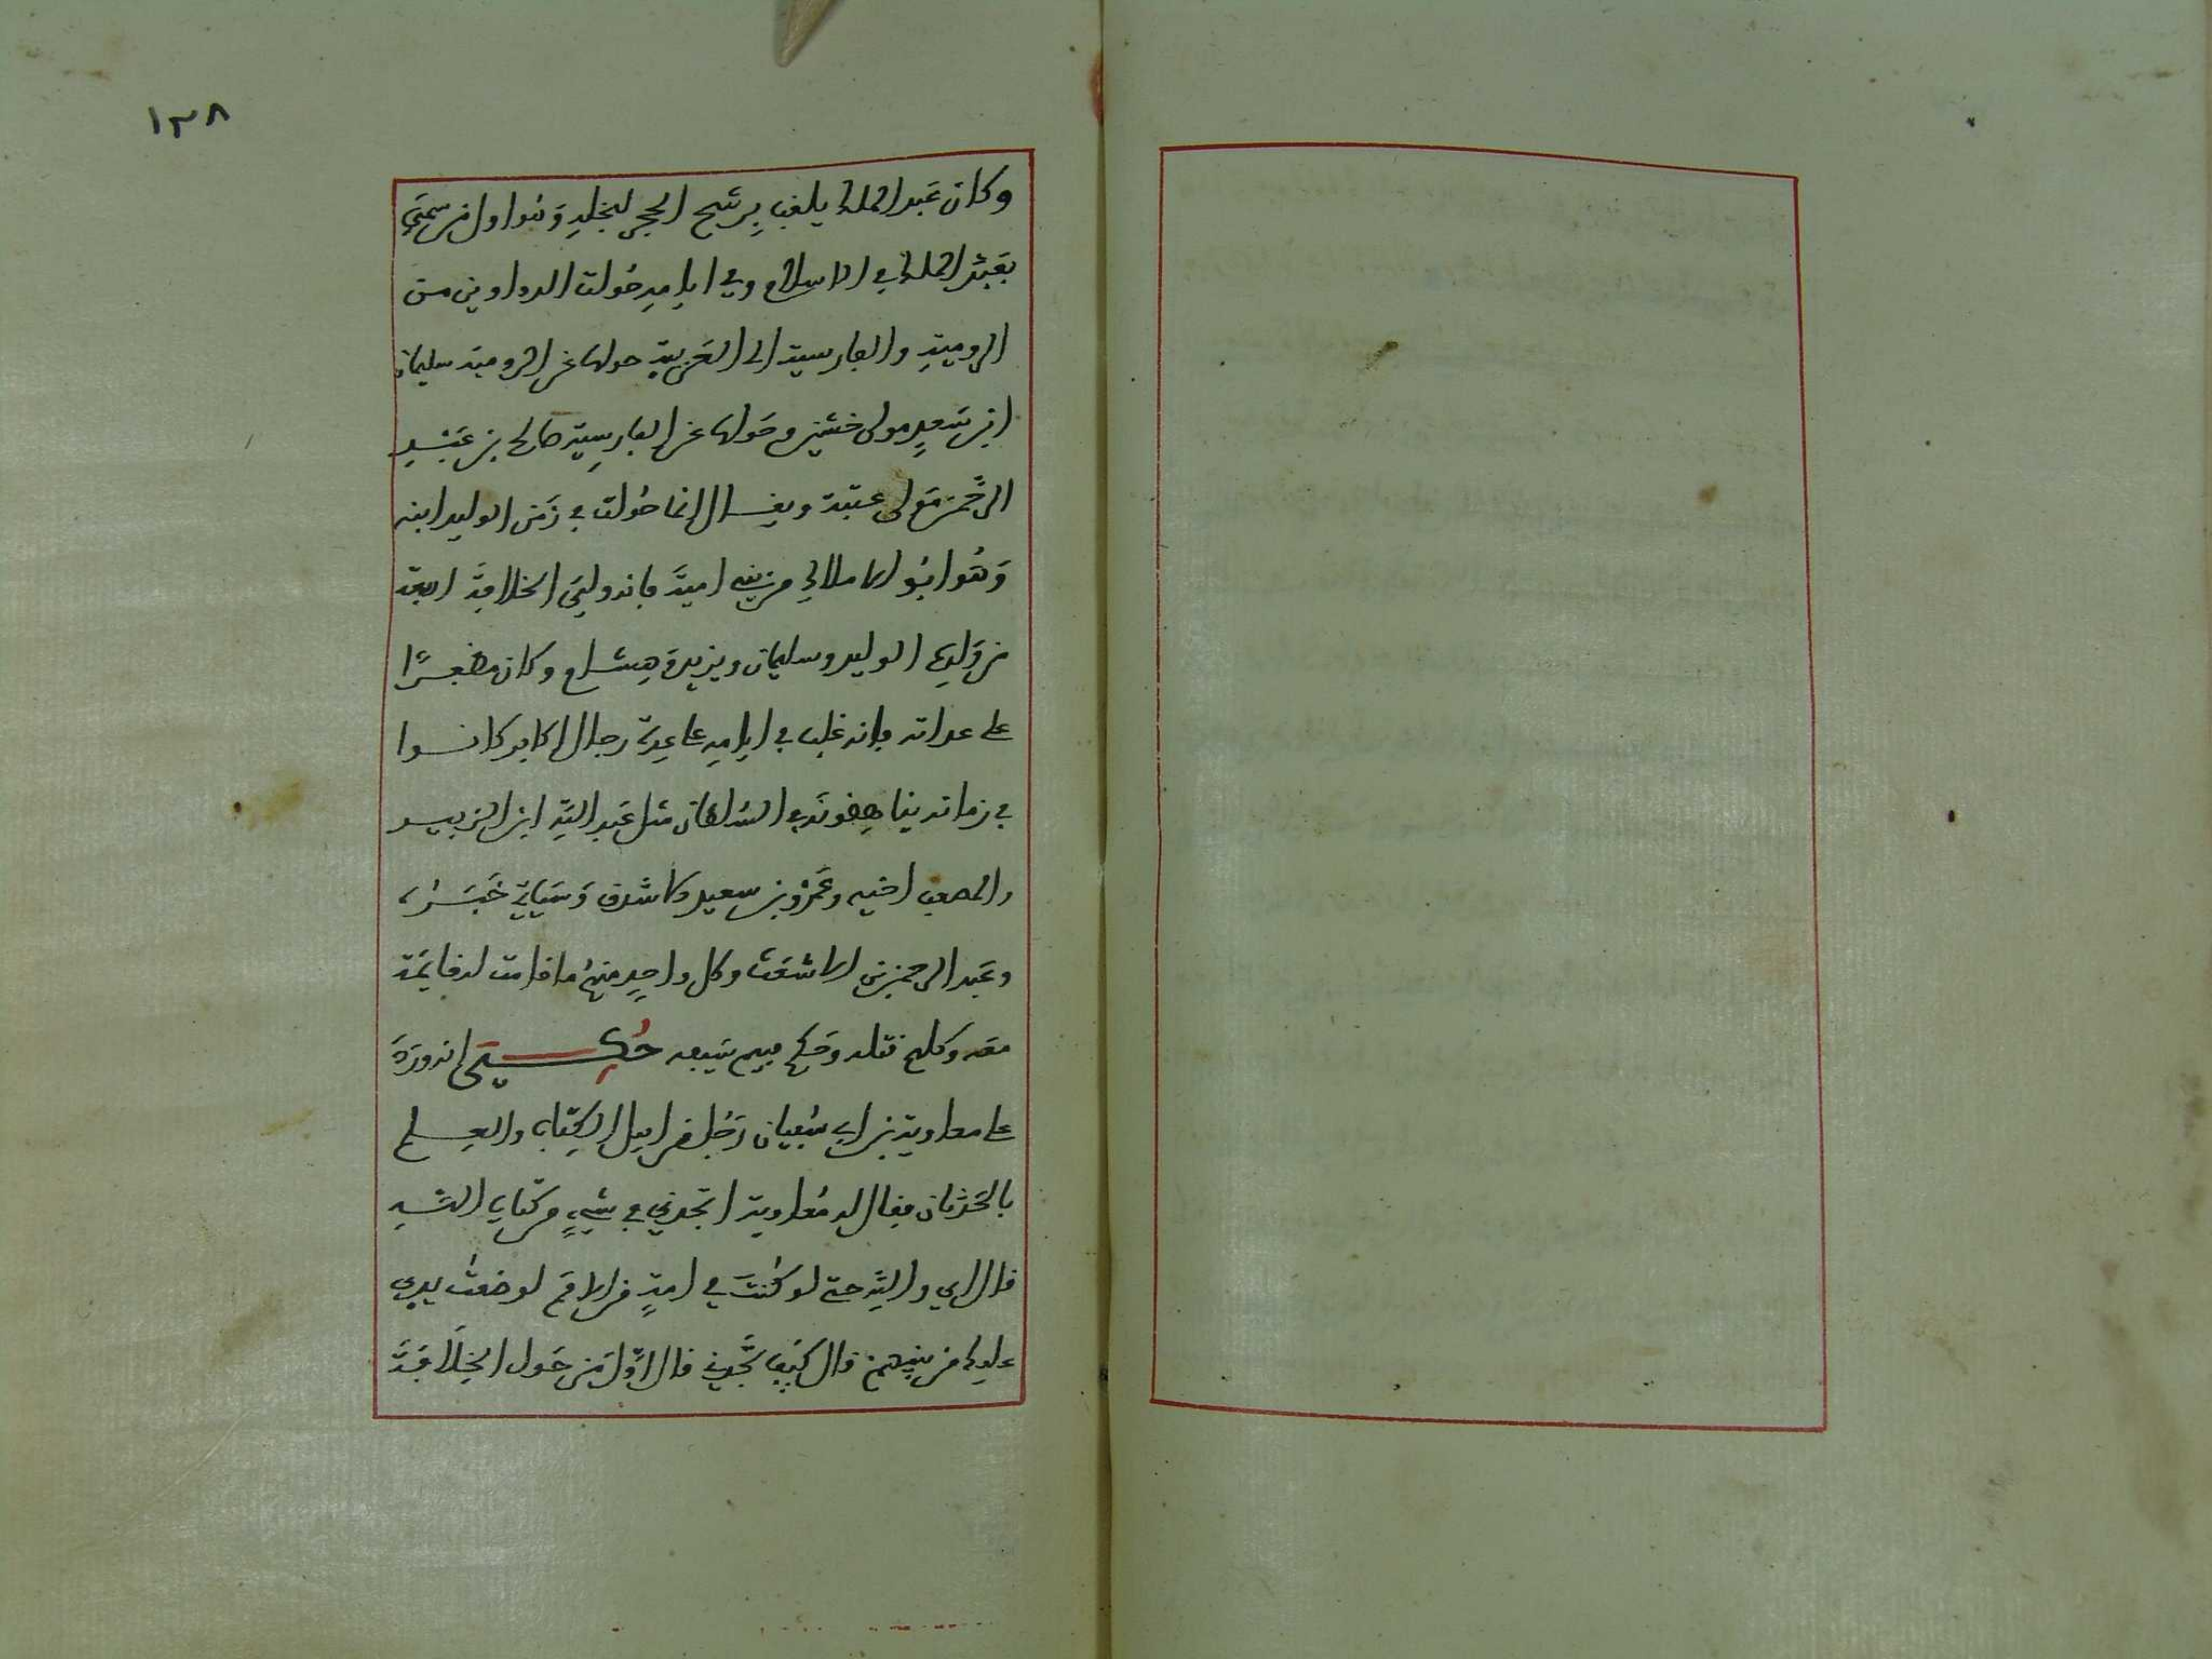 ١٣٨
وكان عَبد الملك يلقب بِرشح الحجر لبخلِهِ وَهُوَ اول من سمِّيَ
بعَبْد الملك في الاسلام وفي ايامِهِ حُولت الدواوين من
الروميةِ والفارسية الى العَربيةِ حولها عن الرومية سليمان
ابن سَعدٍ مولى خشين وحَولها عن الفارسِيّة صالح بن عَبْد
الرحمن مَولى عتبة ويقال انما حُولت في زَمَن الوليد ابنه
وَهُو ابُو الاملاكِ من بني اميةَ فانه وليَ الخلافةَ اربعة
من وَلدِهِ الوليد وسليمان ويزيد وَهِشام وكان مظفرًا
على عداته فانه غلب في ايامِهِ على عِدةِ رجال اكابر كانوا
في زمانه يناهِضونَه في السُلطان مثل عَبد اللّهِ ابن الزبير
والمصعب اخيه وعَمْرو بن سعيد الاشدق وَسَيَاتي خَبَرُه
وعَبد الرحمن بن الاشعَث وكل واحِدٍ منهُم ما قامت له قايمَة
معه وكلهم قتله وحَكم فيهم سَيفه حُكِيَ انه ورَدَ
على معاوية بن ابي سُفيان رَجُل من اهل الكِتاب والعِلم
بالحَدثان فقال له مُعاوية اتجدني في شيءٍ من كتابِ اللّهِ
قال اي واللّهِ حتى لو كُنتَ في امةٍ من الامم لوضعتُ يدي
عليك من بينِهم قال كيفَ تَجدني قال اوَّل مَن حَول الخِلافةَ